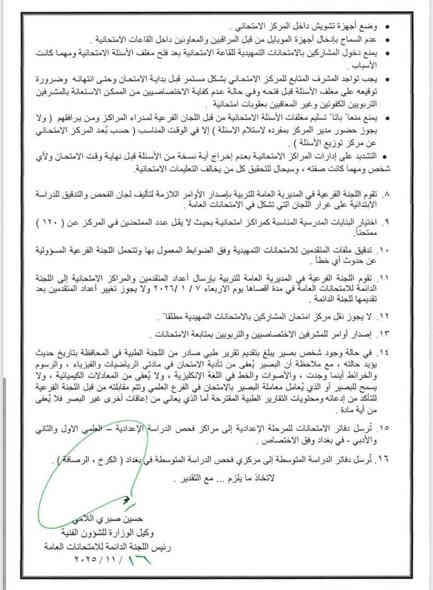 • وضع أجهزة تشويش داخل المركز الامتحاني .
• عدم السماح بإدخال أجهزة الموبايل من قبل المراقبين والمعاونين داخل القاعات الامتحانية .
• يمنع دخول المشاركين بالامتحانات التمهيدية للقاعة الامتحانية بعد فتح مغلف الأسئلة الامتحانية ومهما كانت
الأسباب .
• يجب تواجد المشرف المتابع للمركز الإمتحاني بشكل مستمر قبل بداية الامتحان وحتى انتهائه وضرورة
توقيعه على مغلف الأسئلة قبل فتحه وفي حالة عدم كفاية الاختصاصيين من الممكن الاستعانة بالمشرفين
التربويين الكفوئين وغير المعاقبين بعقوبات امتحانية .
• يمنع منعاً باتاً تسليم مغلفات الأسئلة الامتحانية من قبل اللجان الفرعية لمدراء المراكز ومن يرافقهم ( ولا
يجوز حضور مدير المركز بمفرده لاستلام الاسئلة ) إلا في الوقت المناسب ( حسب بُعد المركز الإمتحاني
عن مركز توزيع الأسئلة ) .
• التشديد على إدارات المراكز الامتحانية بعدم إخراج أية نسخة من الأسئلة قبل نهاية وقت الامتحان ولأي
شخص ومهما كانت صفته ، وسيحال للتحقيق كل من يخالف التعليمات الامتحانية.
٨. تقوم اللجنة الفرعية في المديرية العامة للتربية بإصدار الأوامر اللازمة لتأليف لجان الفحص والتدقيق للدراسة
الابتدائية على غرار اللجان التي تشكل في الامتحانات العامة .
٩. اختيار البنايات المدرسية المناسبة كمراكز امتحانية بحيث لا يقل عدد الممتحنين في المركز عن ( ١٢٠ )
ممتحناً.
١٠. تدقيق ملفات المتقدمين للامتحانات التمهيدية وفق الضوابط المعمول بها وتتحمل اللجنة الفرعية المسؤولية
عن حدوث أي خطأ .
١١. تقوم اللجنة الفرعية في المديرية العامة للتربية بإرسال أعداد المتقدمين والمراكز الامتحانية إلى اللجنة
الدائمة للامتحانات العامة في مدة اقصاها يوم الاربعاء ٢٠٢٦/١/٧ ولا يجوز تغيير أعداد المتقدمين بعد
تقديمها للجنة الدائمة .
١٢. لا يجوز نقل مركز امتحان المشاركين بالامتحانات التمهيدية مطلقاً .
١٣. إصدار أوامر للمشرفين الاختصاصيين والتربويين بمتابعة الامتحانات .
١٤. في حالة وجود شخص بصير يبلغ بتقديم تقرير طبي صادر من اللجنة الطبية في المحافظة بتاريخ حديث
يؤيد حالته ، مع ملاحظة أن البصير يُعفى من تأدية الإمتحان في مادتي الرياضيات والفيزياء ، والرسوم
والخرائط أينما وجدت ، والأصوات والخط في اللغة الإنكليزية ، ولا يُعفى من المعادلات الكيميائية ، ولا
يسمح للبصير أو الذي يُعامل معاملة البصير بالإمتحان في الفرع العلمي وتتم مقابلته من قبل اللجنة الفرعية
للتأكد من إدعائه ومحتويات التقارير الطبية المقترحة أما الذي يعاني من إعاقات أخرى غير البصر فلا يُعفى
من أية مادة .
١٥. تُرسل دفاتر الامتحانات للمرحلة الإعدادية إلى مراكز فحص الدراسة الإعدادية – العلمي الاول والثاني
والأدبي - في بغداد وفق الاختصاص .
١٦. تُرسل دفاتر الدراسة المتوسطة إلى مركزي فحص الدراسة المتوسطة في بغداد ( الكرخ ، الرصافة ) .
لاتخاذ ما يلزم ... مع التقدير .
حسين صبري اللامي
وكيل الوزارة للشؤون الفنية
رئيس اللجنة الدائمة للامتحانات العامة
٢٠٢٥/١١/١٦